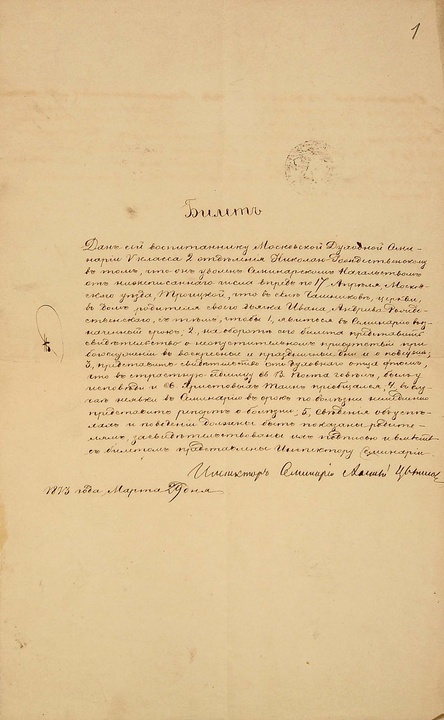 1
Билетъ
Данъ сей воспитаннику Московской Духовной Семи-
наріи V класса 2 отдѣленія Николаю Рождественскому
въ томъ, что онъ уволенъ Семинарскимъ Начальствомъ
отъ нижеписаннаго числа впредь по 17 Апрѣля, Москов-
скаго уѣзда, Троицкой, что въ селѣ Чашниковѣ, церкви,
въ домъ родителя своего дьяка Ивана Андреева Рождe-
ственскаго, съ тѣмъ, чтобы 1, явиться въ Семинарію въ
наченный срокъ; 2, на оборотѣ его билета представилъ
свидѣтельство о неопустительномъ присутствіи при
богослуженіи въ воскресные и праздничные дни и о поведеніи;
3, представилъ свидѣтельство отъ духовнаго отца о томъ,
что въ страстную седмицу Поста говѣлъ, былъ у
исповѣди и Св. Христовыхъ Таинъ пріобщался; 4, въ слу-
чаѣ неявки въ Семинарію въ срокъ по болѣзни немедленно
представилъ рапортъ о болѣзни; 5, свѣденія объ успѣ-
хахъ и поведеніи должны быть показаны родите-
лямъ, засвидѣтельствованы ихъ подписью и вмѣстѣ
съ билетомъ представлены Инспектору Семинаріи.
Инспекторъ Семинаріи
1873 года Марта 29 дня